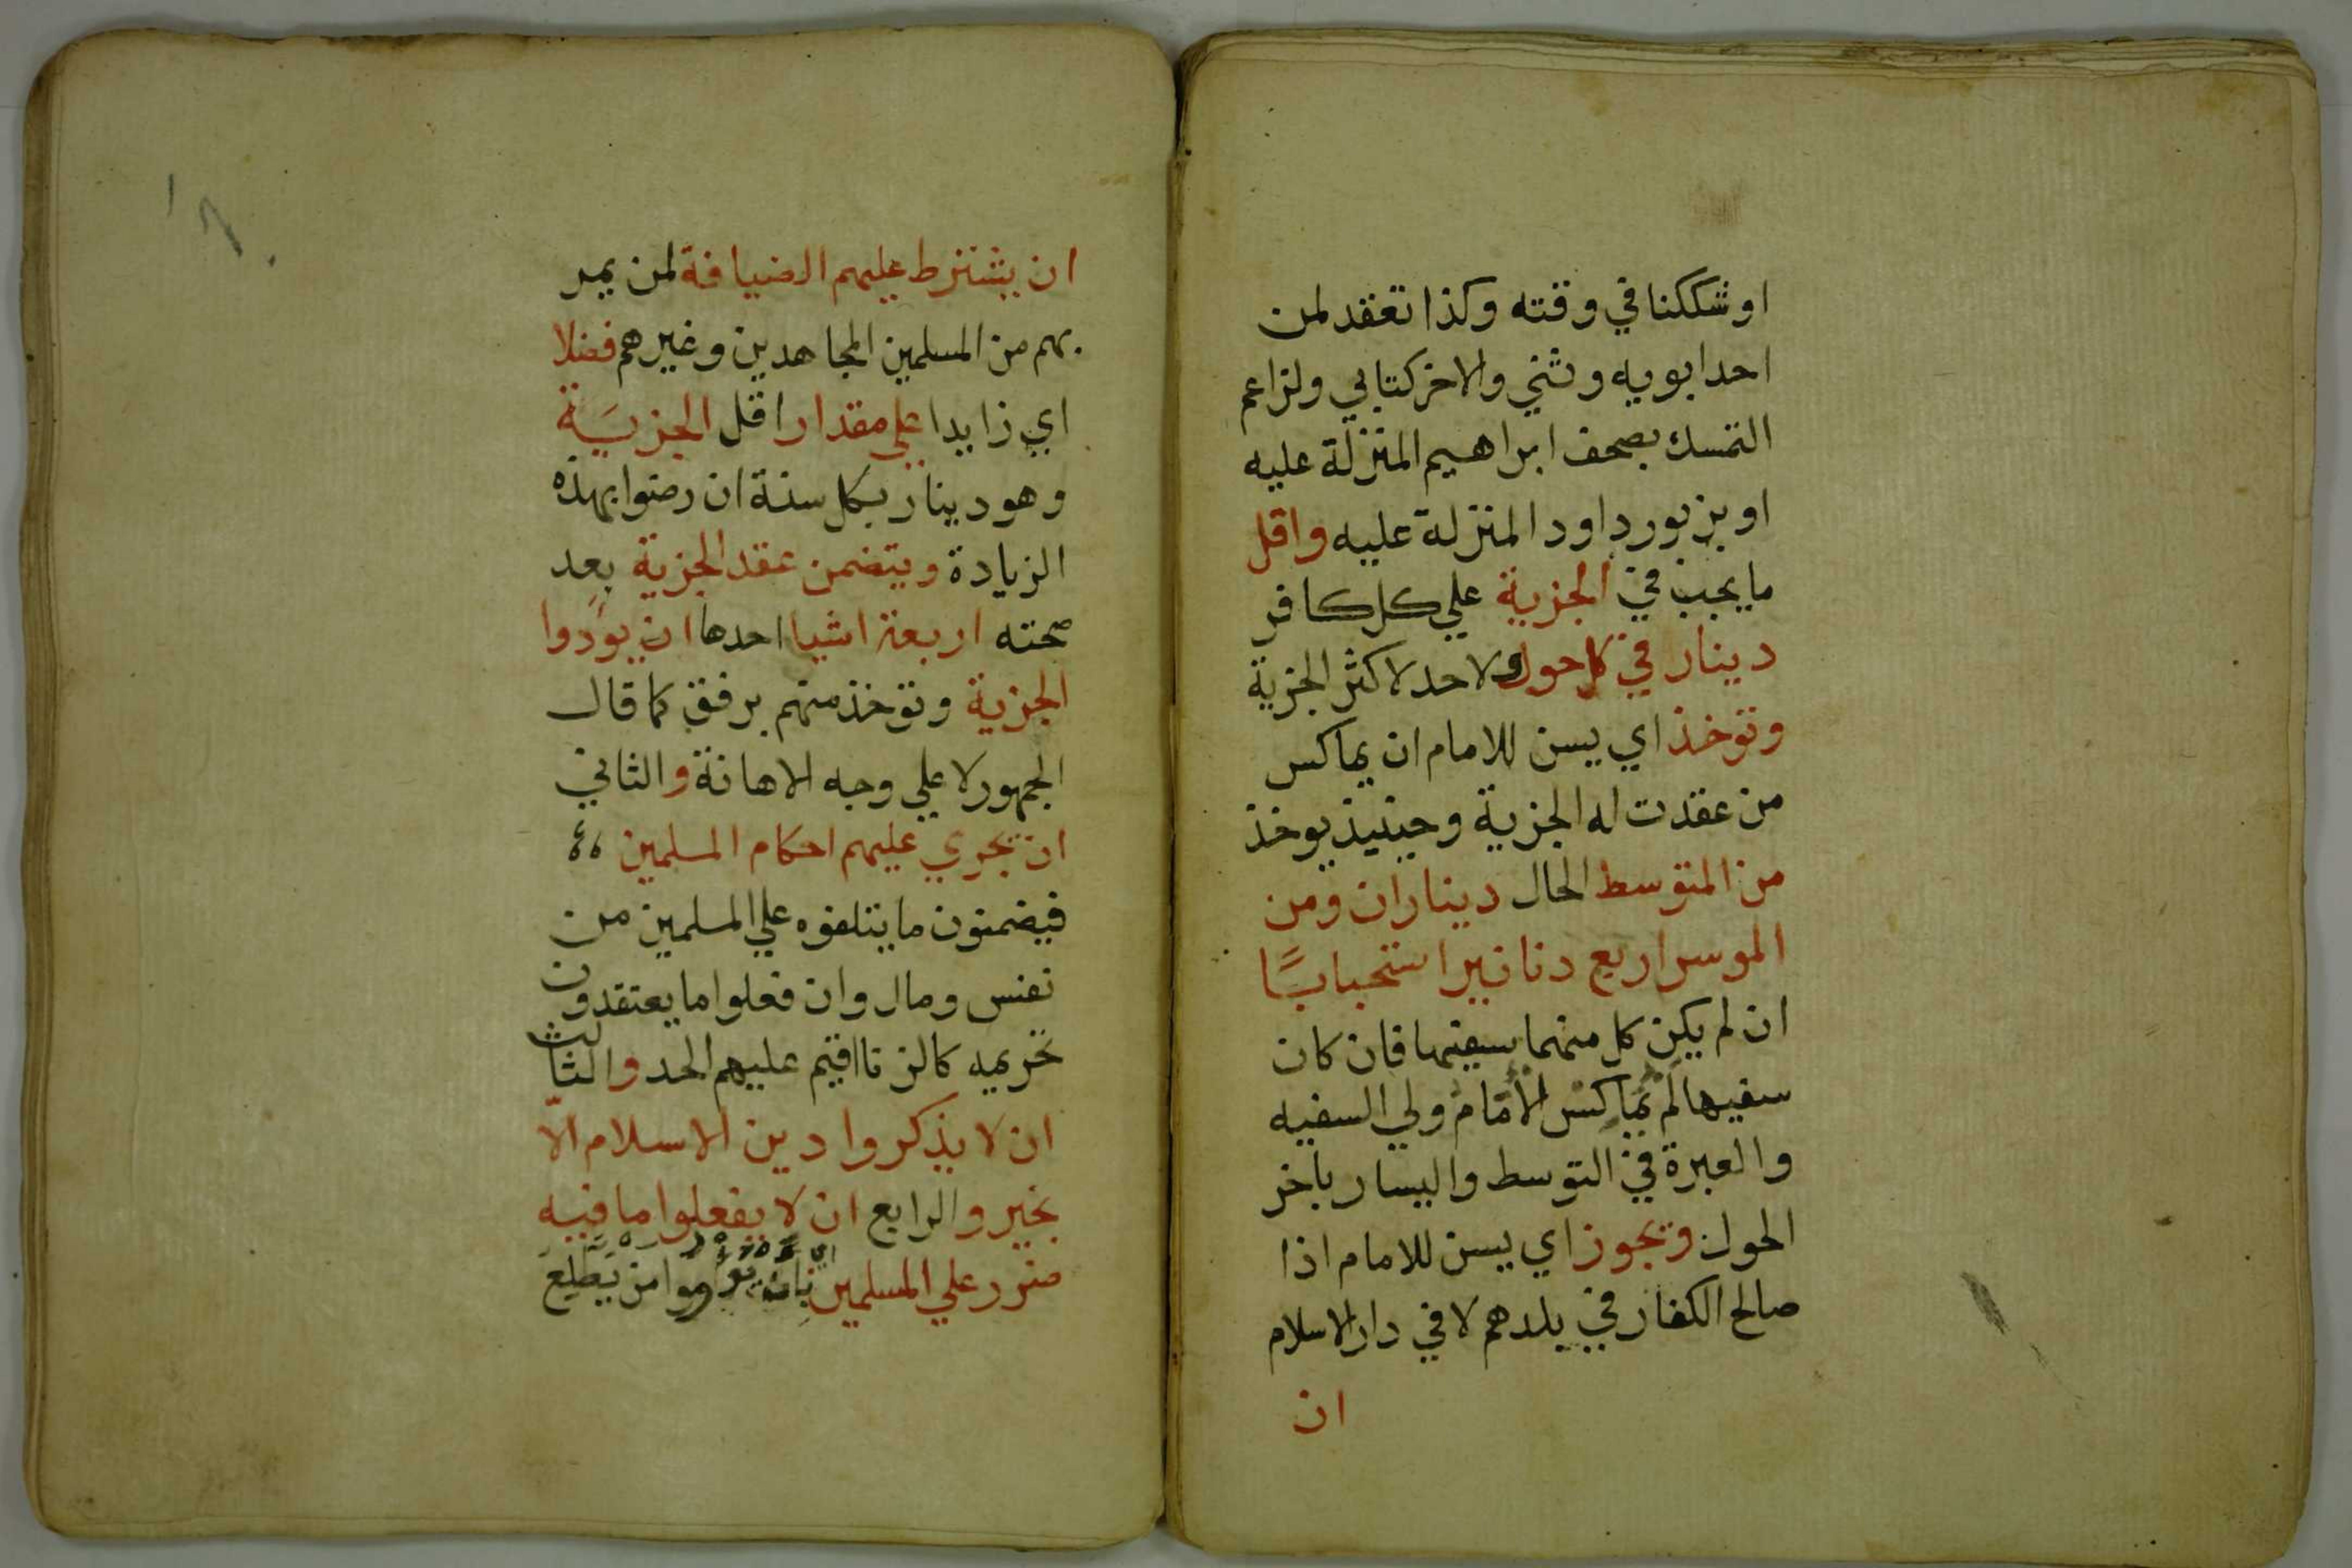 او شككنا في وقته وكذا تعقد لمن
احد ابويه وثني والاخر كتابي ولزاعم
التمسك بصحف ابراهيم المنزلة عليه
او بزبور داود المنزلة عليه واقل
ما يجب في الجزية علي كل كافر
دينار في كل حول ولا حد لاكثر الجزية
وتوخذ اي يسن للامام ان يماكس
من عقدت له الجزية وحينيذ يوخذ
من المتوسط الحال ديناران ومن
الموسر اربع دنانير استحبابًا
ان لم يكن كل منهما سفيها فان كان
سفيها لم يماكس الامام ولي السفيه
والعبرة في التوسط واليسار باخر
الحول ويجوز اي يسن للامام اذا
صالح الكفار في بلدهم لا في دار الاسلام
ان
ان يشترط عليهم الضيافة لمن يمر
بهم من المسلمين المجاهدين وغيرهم فضلا
اي زايدا علي مقدار اقل الجزية
وهو دينار بكل سنة ان رضوا بهذه
الزيادة ويتضمن عقد الجزية بعد
صحته اربعة اشيا احدها ان يودوا
الجزية وتوخذ منهم برفق كما قال
الجمهور لا علي وجه الاهانة والثاني
ان تجري عليهم احكام المسلمين
فيضمنون ما يتلفوه علي المسلمين من
نفس ومال وان فعلوا ما يعتقدون
تحريمه كالزنا اقيم عليهم الحد والثالث
ان لا يذكروا دين الاسلام الّا
بخير والرابع ان لا يفعلوا ما فيه
ضرر علي المسلمين من يطلع